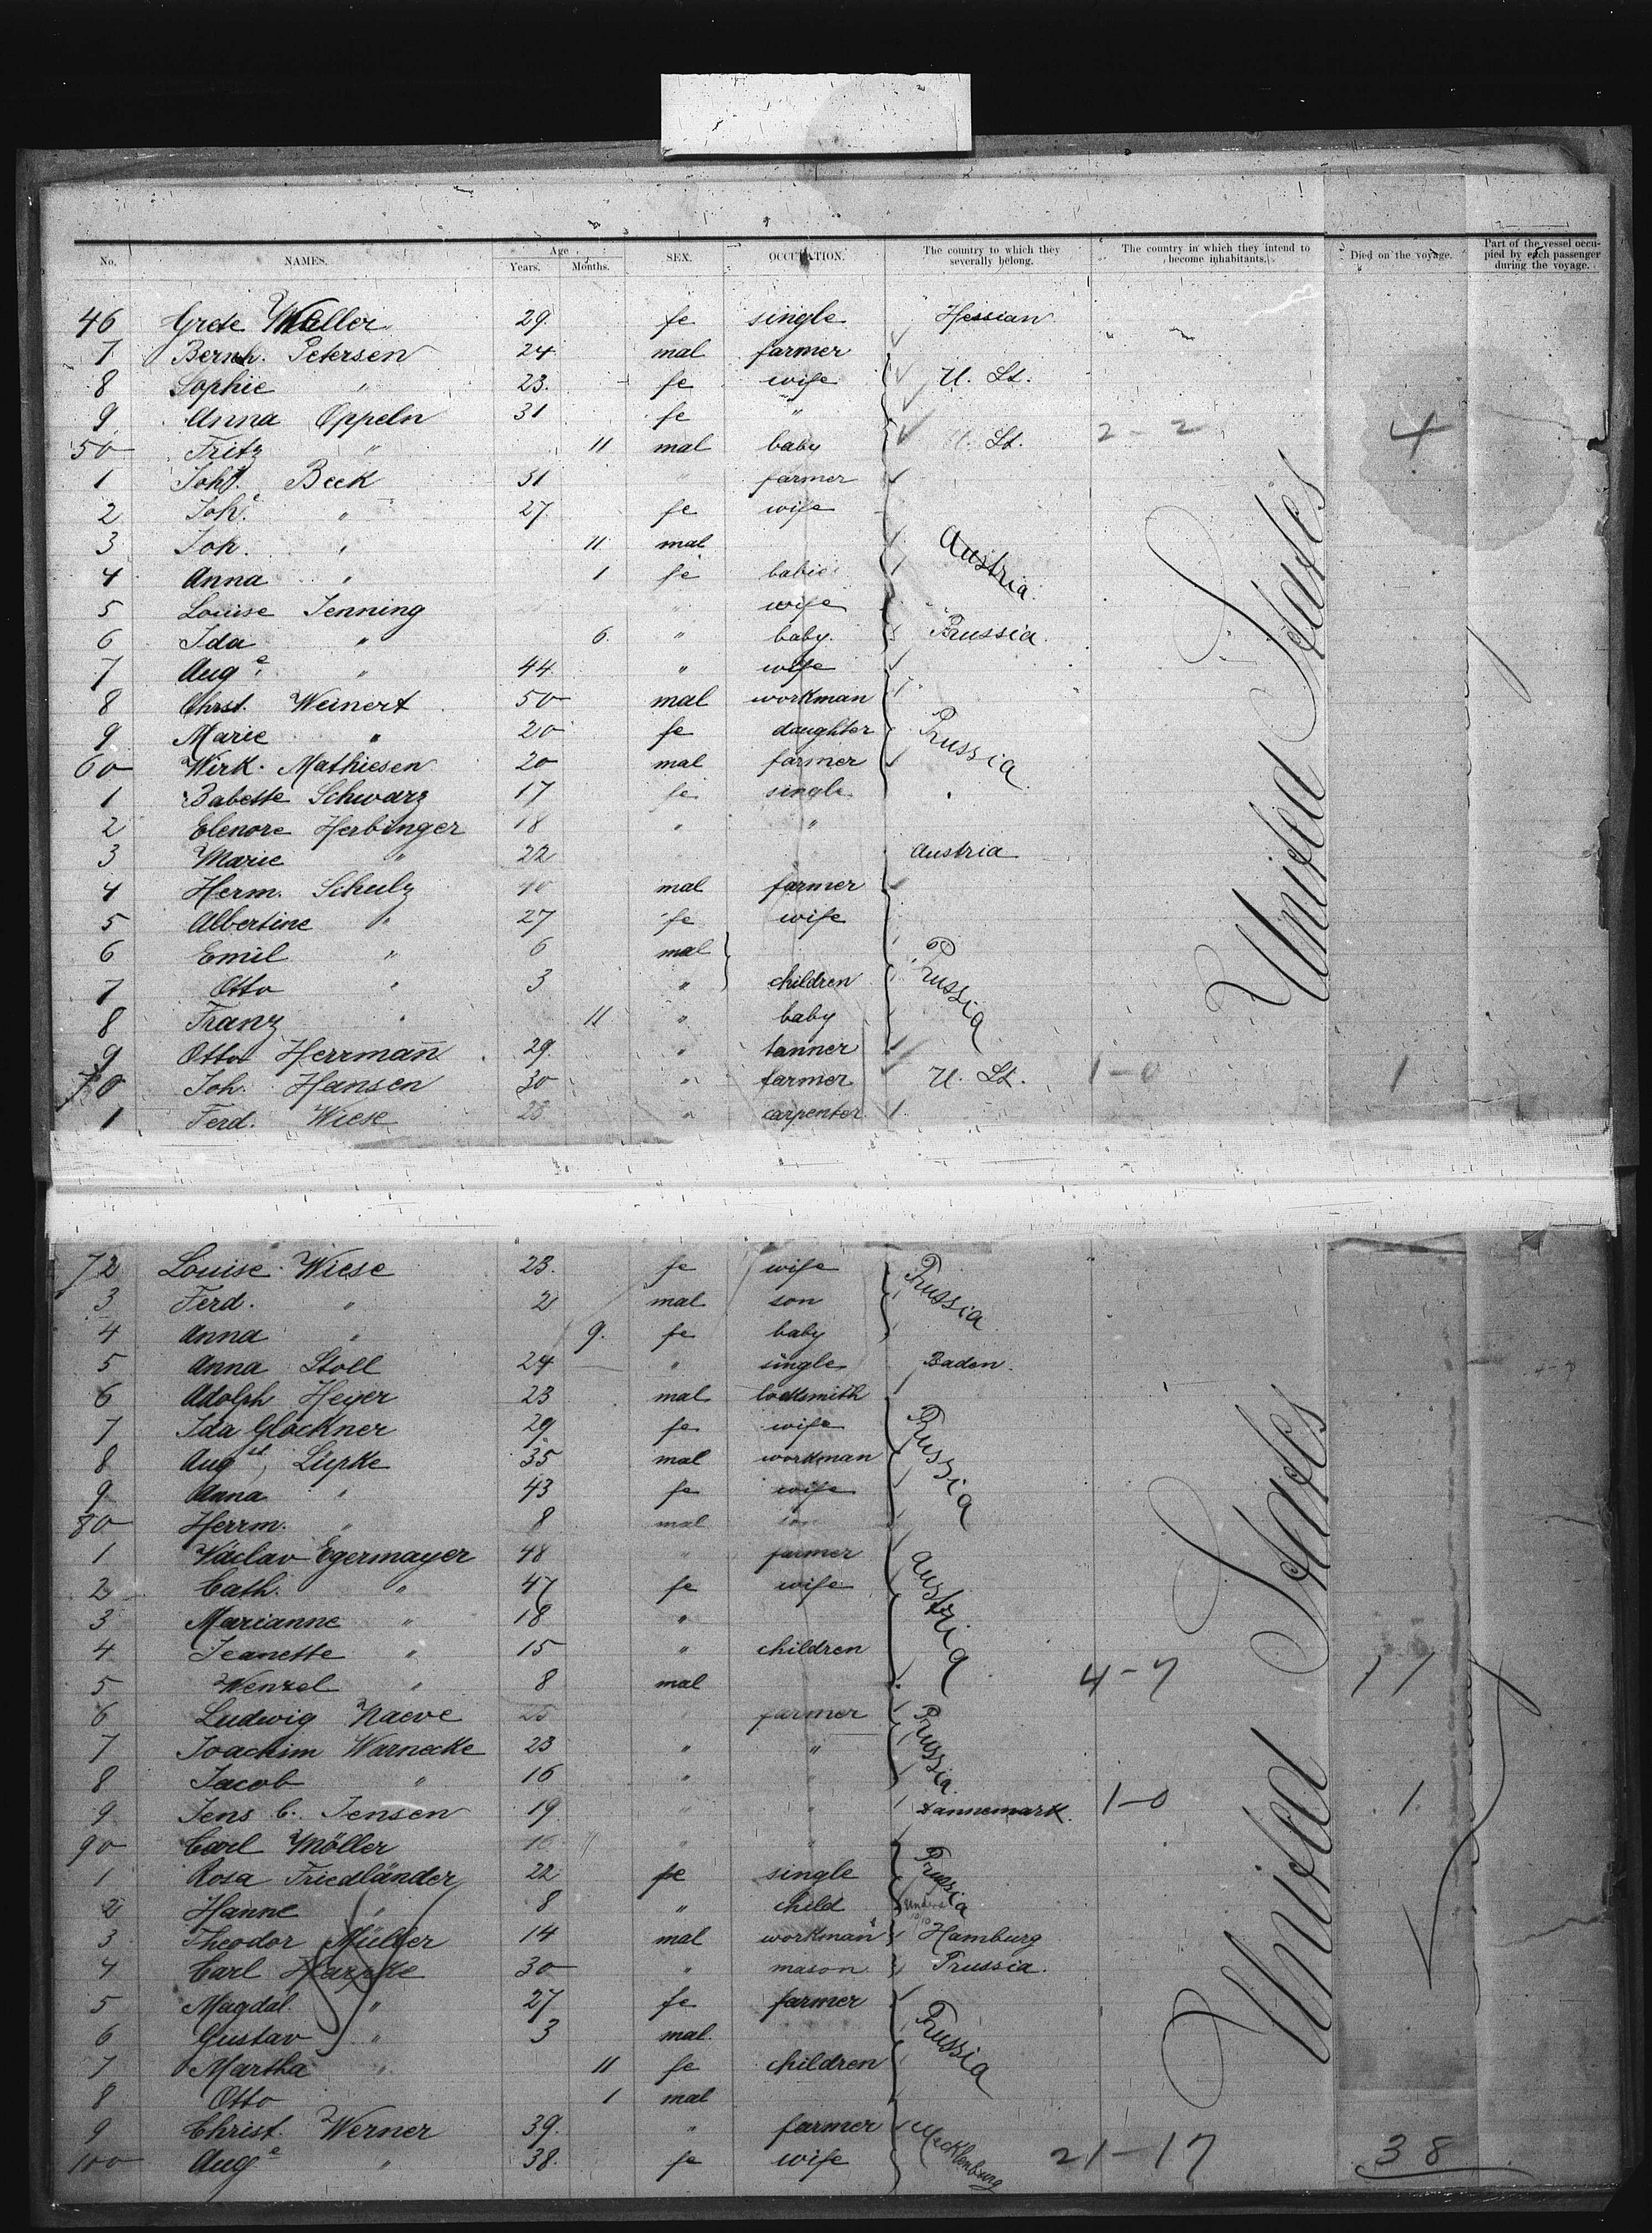 No. NAMES. Age Years. Months. SEX. OCCUPATION. The country to which they severally belong. The country in which they intend to become inhabitants. Died on the voyage. Part of the vessel occupied by each passenger during the voyage.
46 Grete 29 fe single Hessian
7 Bernh. Petersen 24 mal farmer
8 Sophie " 23 fe wife U. St.
9 Anna Oppeln 31 fe "
50 Fritz " 11 mal baby U. St. 2-2 4
1 Joh. Beck 31 " farmer
2 Joh.e " 27 fe wife
3 Joh. " 11 mal Austria
4 Anna " 1 fe babies
5 Louise Jenning " wife
6 Ida " 6 " baby Prussia.
7 Aug.e " 44 " wife
8 Chrst. Weinert 50 mal workman
9 Marie " 20 fe daughter Prussia
60 Wirk. Mathiesen 20 mal farmer
1 Babette Schwarz 17 fe single
2 Elenore Herbinger 18 " "
3 Marie " 22 Austria
4 Herm. Schulz 40 mal farmer
5 Albertine " 27 fe wife
6 Emil " 6 mal Prussia
7 Otto " 3 " children
8 Franz " 11 " baby
9 Otto Herrmann 29 " tanner
70 Joh. Hansen 30 " farmer U. St. 1-0 1
1 Ferd. Wiese 28 " carpenter
United States
72 Louise Wiese 23 fe wife Prussia
3 Ferd. " 2 mal son
4 Anna " 9 fe baby
5 Anna Stoll 24 " single Baden.
6 Adolph Heyer 23 mal locksmith
7 Ida Glöckner 29 fe wife Prussia
8 Augst, Lüpke 35 mal workman
9 Anna " 43 fe wife
80 Herrm. " 8 mal son
1 Václav Egermayer 48 " farmer Austria
2 Cath. " 47 fe wife
3 Marianne " 18 "
4 Jeanette " 15 " children
5 Wenzel " 8 mal 4-7 11
6 Ludwig Naeve 25 " farmer Prussia.
7 Joachim Warnecke 23 " "
8 Jacob " 16 " "
9 Jens C. Jensen 19 " " Dannemark. 1-0 1
90 Carl Möller 16 " "
1 Rosa Friedländer 22 fe single Prussia
2 Hanne " 8 " child
3 Theodor Müller 14 mal workman Hamburg
4 Carl 30 " mason Prussia.
5 Magdal. " 27 fe farmer
6 Gustav " 3 mal. Prussia
7 Martha " 11 fe children
8 Otto 1 mal
9 Christ. Werner 39. " farmer Mecklenburg
100 Auge " 38. fe wife 21-17 38
United States